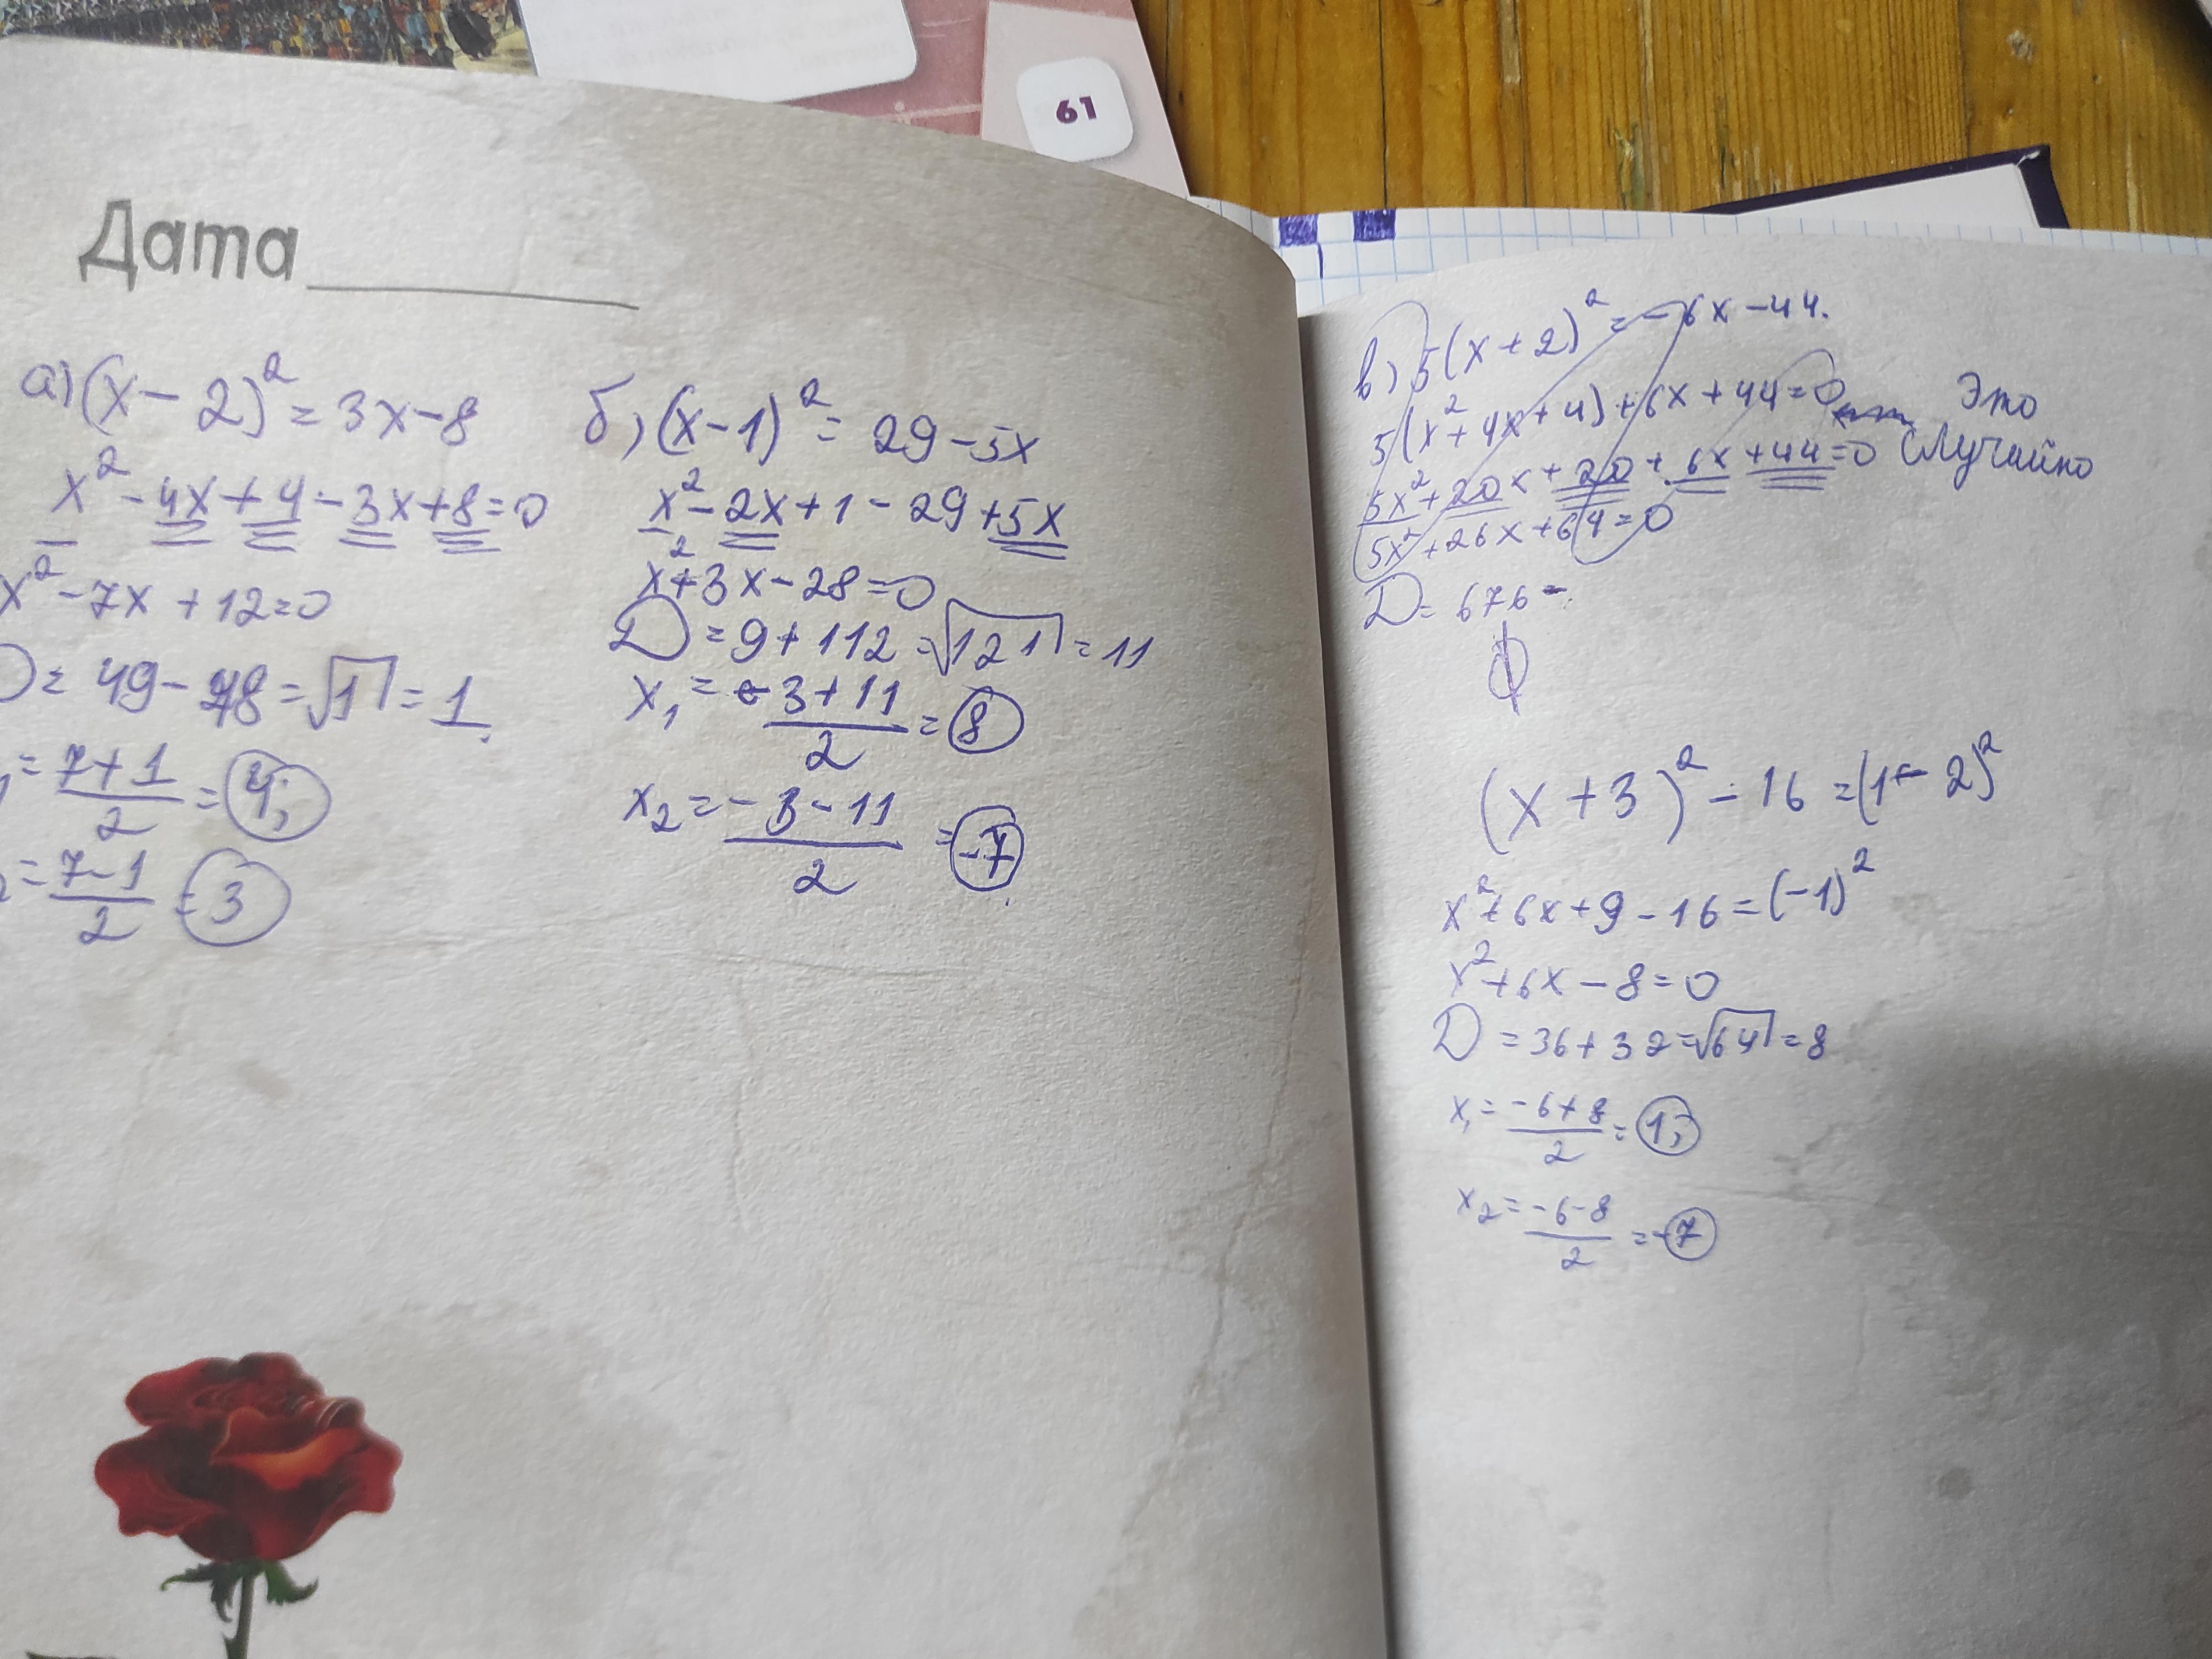 61
Дата
а) (x-2)² = 3x-8
x²-4x+4-3x+8=0
x²-7x+12=0
D= 49-48=√1=1
1=7+1/2=4;
2=7-1/2=3
б) (x-1)² = 29-5x
x²-2x+1-29+5x
x²+3x-28=0
D=9+112=√121=11
x₁=-3+11/2=8
x₂=-3-11/2=-7
в) 5(x+2)²=-6x-44.
5(x²+4x+4)+6x+44=0 Это
5x²+20x+20+6x+44=0 Случайно
5x²+26x+64=0
D=676-
(x+3)²-16=(1-2)²
x²+6x+9-16=(-1)²
x²+6x-8=0
D=36+32=√64=8
x₁=-6+8/2=1;
x₂=-6-8/2=-7